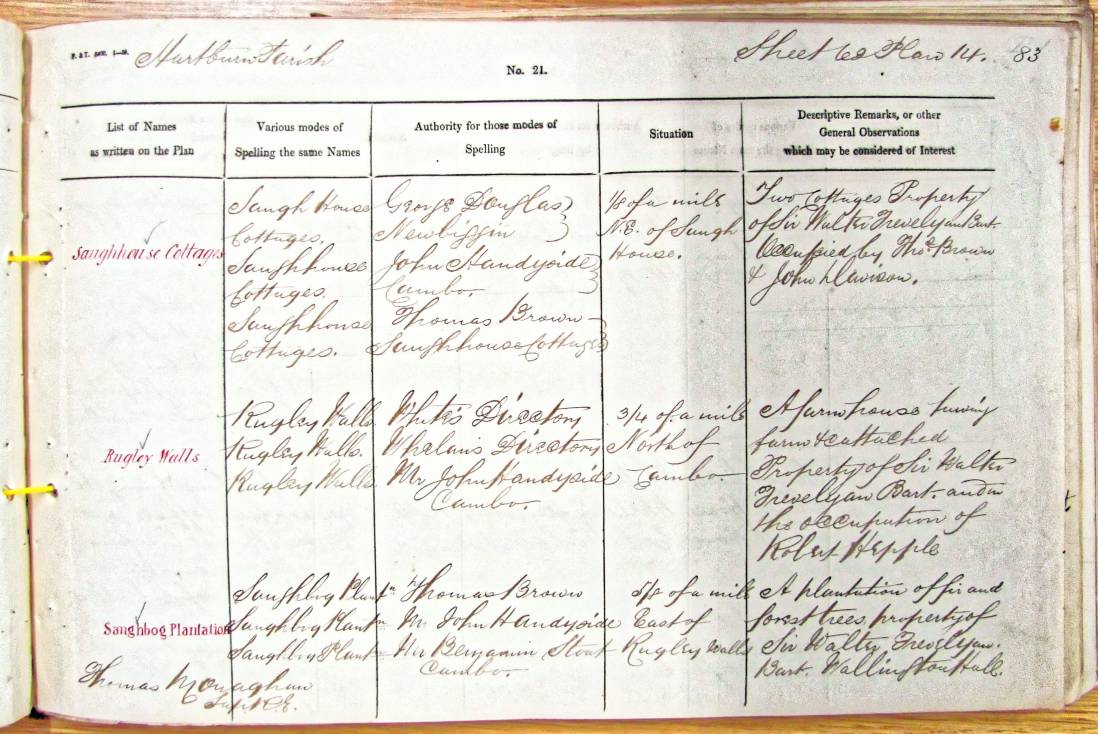 Hartburn Parish
Sheet 62 Plan 14. 83
No. 21.
List of Names
as written on the Plan
Various modes of
Spelling the same Names
Authority for those modes of
Spelling
Situation
Descriptive Remarks, or other
General Observations
which may be considered of Interest
Saughhouse Cottages
Saugh House
Cottages.
Saughhouse
Cottages.
Saughhouse
Cottages.
George Douglas
Newbiggin
John Handyside
Cambo.
Thomas Brown
Saughhouse Cottages
1/8 of a mile
N.E. of Saugh
House.
Two Cottages Property
of Sir Walter Trevelyan Bart.
Occupied by Thos. Brown
& John Davison.
Rugley Walls
Rugley Walls.
Rugley Walls.
Rugley Walls.
White's Directory
Whelan's Directory
Mr John Handyside
Cambo.
3/4 of a mile
North of
Cambo
A farm house having
farm &c attached
Property of Sir Walter
Trevelyan Bart. and in
the occupation of
Robert Hepple
Saughbog Plantation
Saughbog Plantn
Saughbog Plantn
Saughbog Plantn
Thomas Brown
Mr John Handyside
Mr Benjamin Stout
Cambo.
5/8 of a mile
East of
Rugley Walls
A plantation of fir and
forest trees, property of
Sir Walter Trevelyan.
Bart. Wallington Hall.
Thomas Monaghan
Sapr R.E.